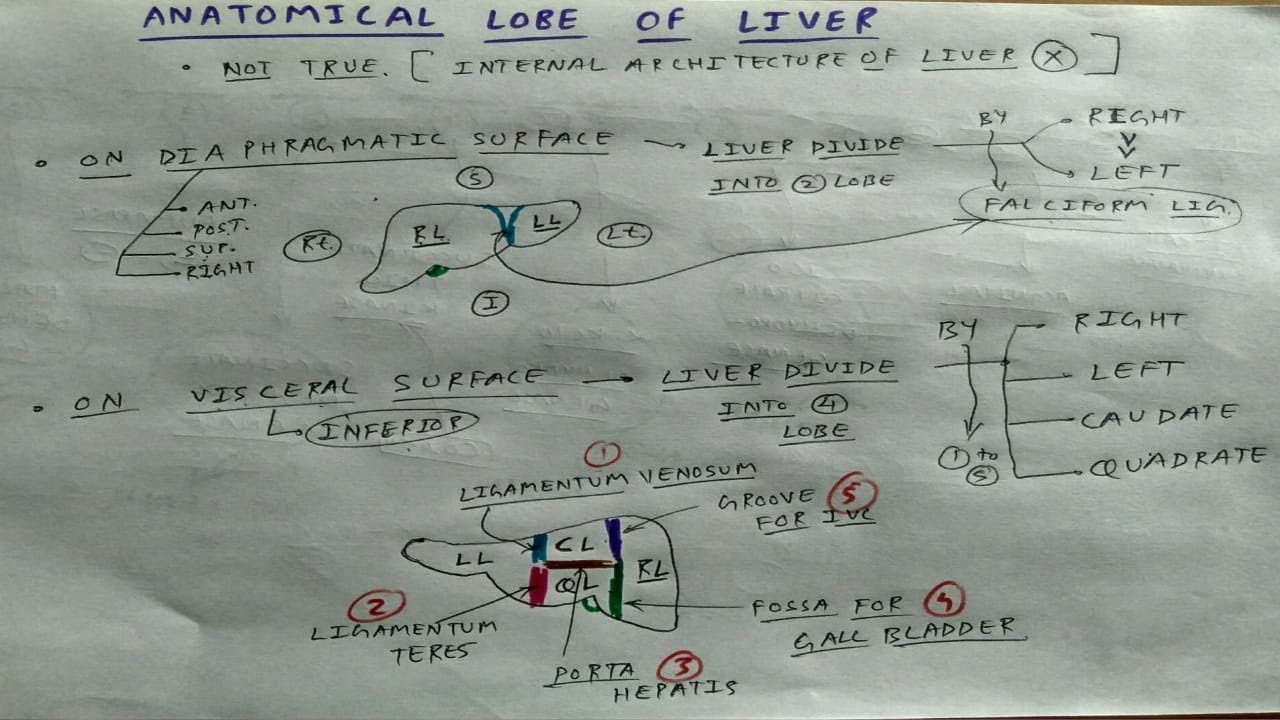 ANATOMICAL LOBE OF LIVER
• NOT TRUE. [ INTERNAL ARCHITECTURE OF LIVER X ]
• ON DIAPHRAGMATIC SURFACE → LIVER DIVIDE
INTO 2 LOBE
BY
RIGHT
LEFT
FALCIFORM LIG.
ANT.
POST.
SUP.
RIGHT
S
Rt.
RL
LL
Lt.
I
• ON VISCERAL SURFACE → LIVER DIVIDE
INTO 4
LOBE
INFERIOR
BY
1 to
5
RIGHT
LEFT
CAUDATE
QUADRATE
1
LIGAMENTUM VENOSUM
GROOVE 5
FOR IVC
LL
CL
QL
RL
2
LIGAMENTUM
TERES
FOSSA FOR 4
GALL BLADDER
PORTA 3
HEPATIS